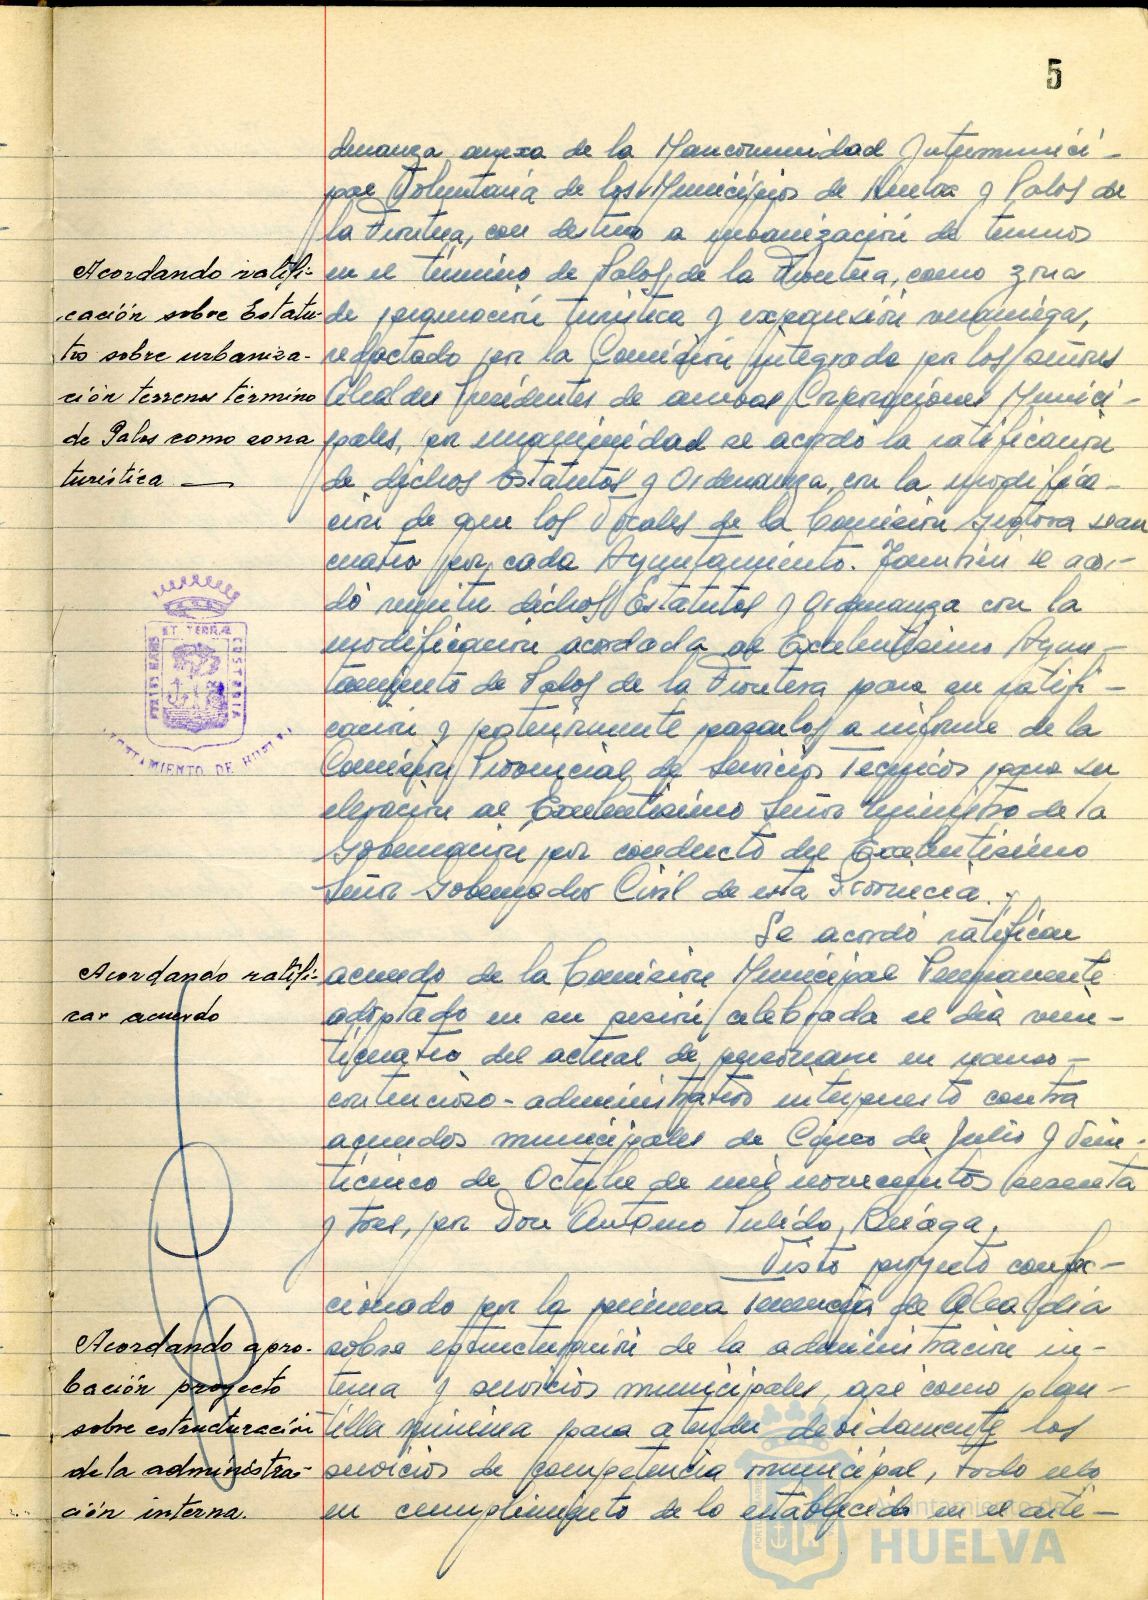 5
denanza anexa de la Mancomunidad Intermunici-
pal Voluntaria de los Municipios de Huelva y Palos de
la Frontera, con destino a urbanización de terrenos
en el término de Palos de la Frontera, como zona
de promoción turística y expansión veraniega,
redactado por la Comisión integrada por los señores
Alcaldes Presidentes de ambas Corporaciones Munici-
pales, por unanimidad se acordó la ratificación
de dichos Estatutos y Ordenanza, con la modifica-
ción de que los Vocales de la Comisión Gestora sean
cuatro por cada Ayuntamiento. También se acor-
dó remitir dichos Estatutos y Ordenanza con la
modificación acordada al Excelentísimo Ayun-
tamiento de Palos de la Frontera para su ratifi-
cación y posteriormente pasarlos a informe de la
Comisión Provincial de Servicios Técnicos para su
elevación al Excelentísimo Señor Ministro de la
Gobernación por conducto del Excelentísimo
Señor Gobernador Civil de esta Provincia.
Se acordó ratificar
acuerdo de la Comisión Municipal Permanente
adoptado en su sesión celebrada el día vein-
ticuatro del actual de personarse en recurso
contencioso-administrativo interpuesto contra
acuerdos municipales de Cinco de Julio y Vein-
ticinco de Octubre de mil novecientos sesenta
y tres, por Don Antonio Pulido
Visto proyecto confec-
cionado por la primera Tenencia de Alcaldía
sobre estructuración de la administración in-
terna y servicios municipales, así como plan-
tilla mínima para atender debidamente los
servicios de competencia municipal, todo ello
en cumplimiento de lo establecido en el artí-
Acordando ratifi-
cación sobre Estatu-
tos sobre urbaniza-
ción terrenos término
de Palos como zona
turística
PORTUS MARIS ET TERRAE CUSTODIA
AYUNTAMIENTO DE HUELVA
Acordando ratifi-
car acuerdo
Acordando apro-
bación proyecto
sobre estructuración
de la administra-
ción interna.
Ayuntamiento de
HUELVA